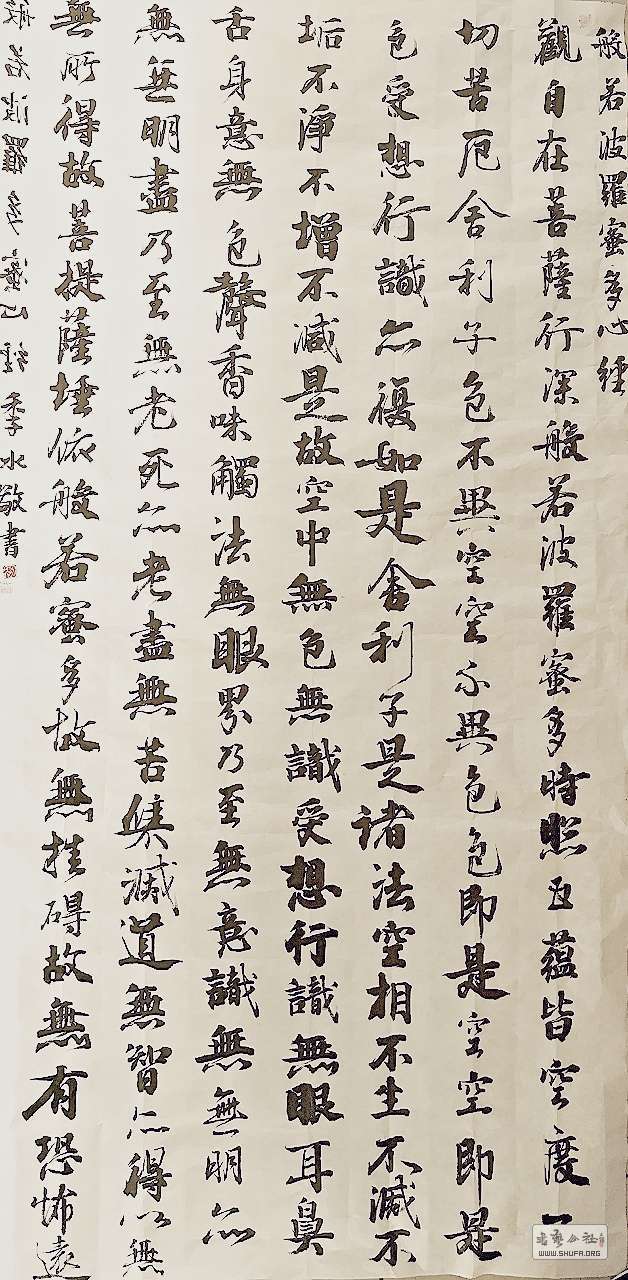 般若波羅蜜多心經
觀自在菩薩行深般若波羅蜜多時照五蘊皆空度一
切苦厄舍利子色不異空空不異色色即是空空即是
色受想行識亦復如是舍利子是諸法空相不生不滅不
垢不淨不增不減是故空中無色無識受想行識無眼耳鼻
舌身意無色聲香味觸法無眼界乃至無意識無無明亦
無無明盡乃至無老死亦老盡無苦集滅道無智亦得以無
無所得故菩提薩埵依般若蜜多故無挂碍故無有恐怖遠
般若波羅多蜜心經 水書
WWW.SHUFA.ORG